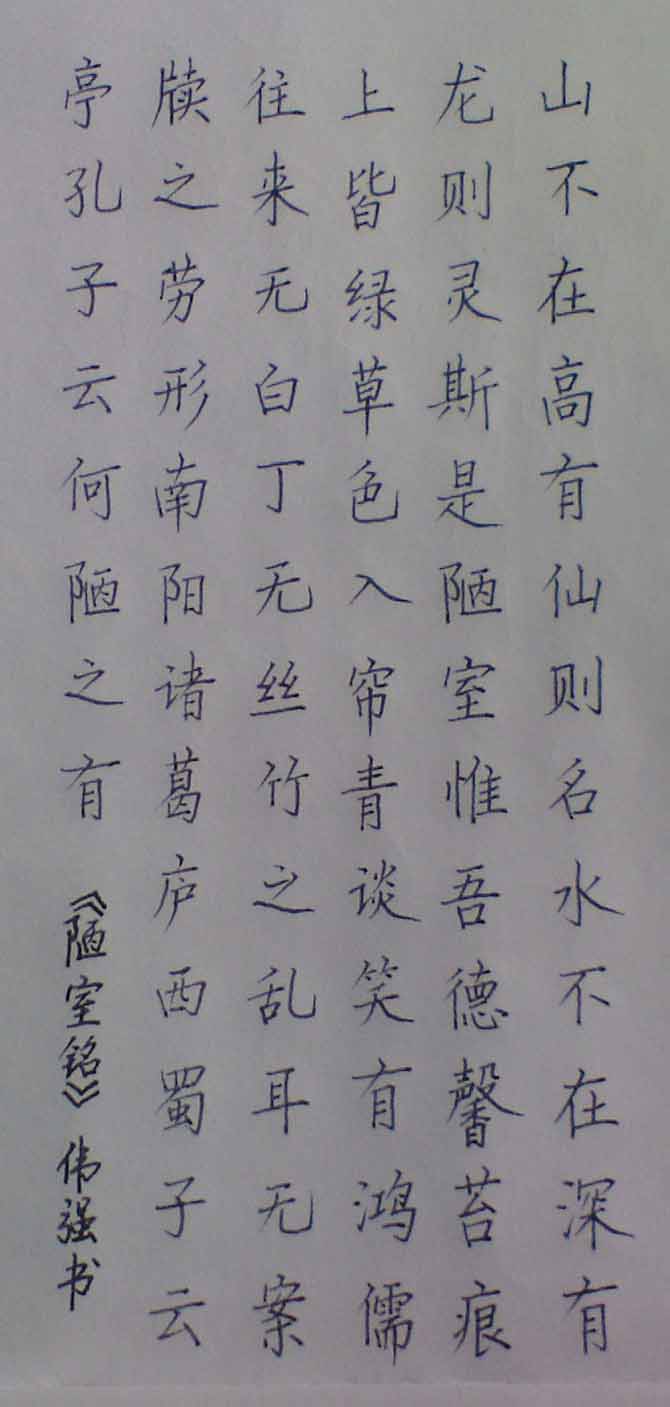 山不在高有仙则名水不在深有
龙则灵斯是陋室惟吾德馨苔痕
上皆绿草色入帘青谈笑有鸿儒
往来无白丁无丝竹之乱耳无案
牍之劳形南阳诸葛庐西蜀子云
亭孔子云何陋之有
《陋室铭》伟强书